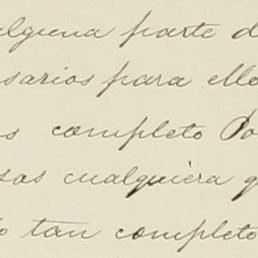 alguna parte d
sarios para ello
s completo Po
sas cualquiera q
o tan completo